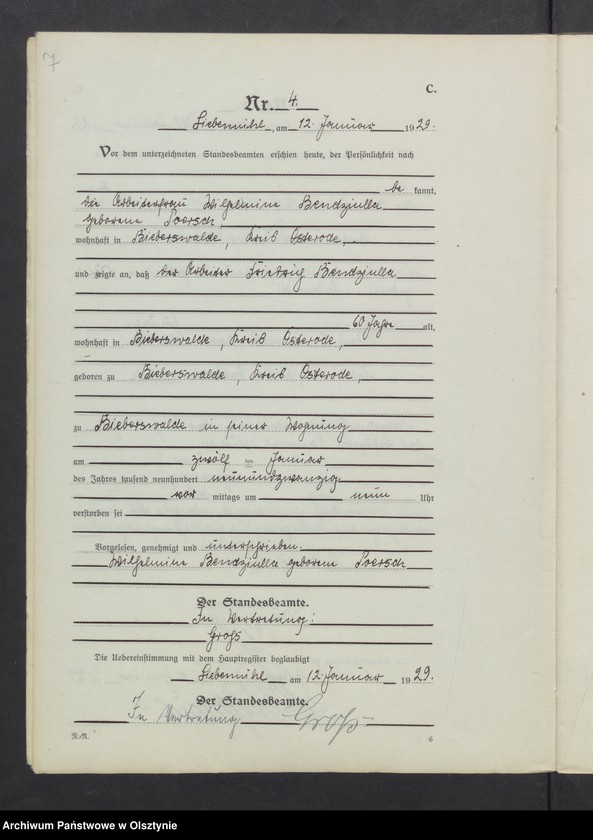 7
C.
Nr. 4.
Liebemühl, am 12. Januar 1929.
Vor dem unterzeichneten Standesbeamten erschien heute, der Persönlichkeit nach
be kannt,
die Arbeiterfrau Wilhelmine Bendzjulla
geborene Poersch,
wohnhaft in Bieberswalde, Kreis Osterode,
und zeigte an, daß der Arbeiter Friedrich Bendzjulla
60 Jahre alt,
wohnhaft in Bieberswalde, Kreis Osterode,
geboren zu Bieberswalde, Kreis Osterode,
zu Bieberswalde in seiner Wohnung
am zwölften Januar
des Jahres tausend neunhundert neunundzwanzig
vor mittags um neun Uhr
verstorben sei
Vorgelesen, genehmigt und unterschrieben.
Wilhelmine Bendzjulla geborene Poersch
Der Standesbeamte.
In Vertretung:
Groß
Die Uebereinstimmung mit dem Hauptregister beglaubigt
Liebemühl am 12. Januar 1929.
Der Standesbeamte.
In Vertretung Groß
N.-N.
6
Archiwum Państwowe w Olsztynie